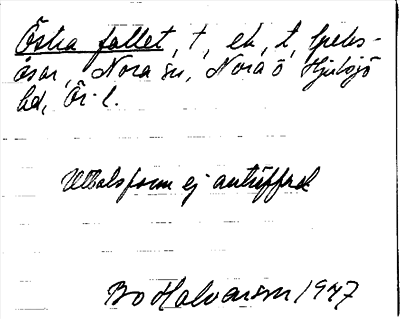 Östra fallet, t, ek, t, Spels-
åsar, Nora sn, Nora o Hjulsjö
hd, Ör. l.
Uttalsform ej anträffad
Bo Halvarson 1947